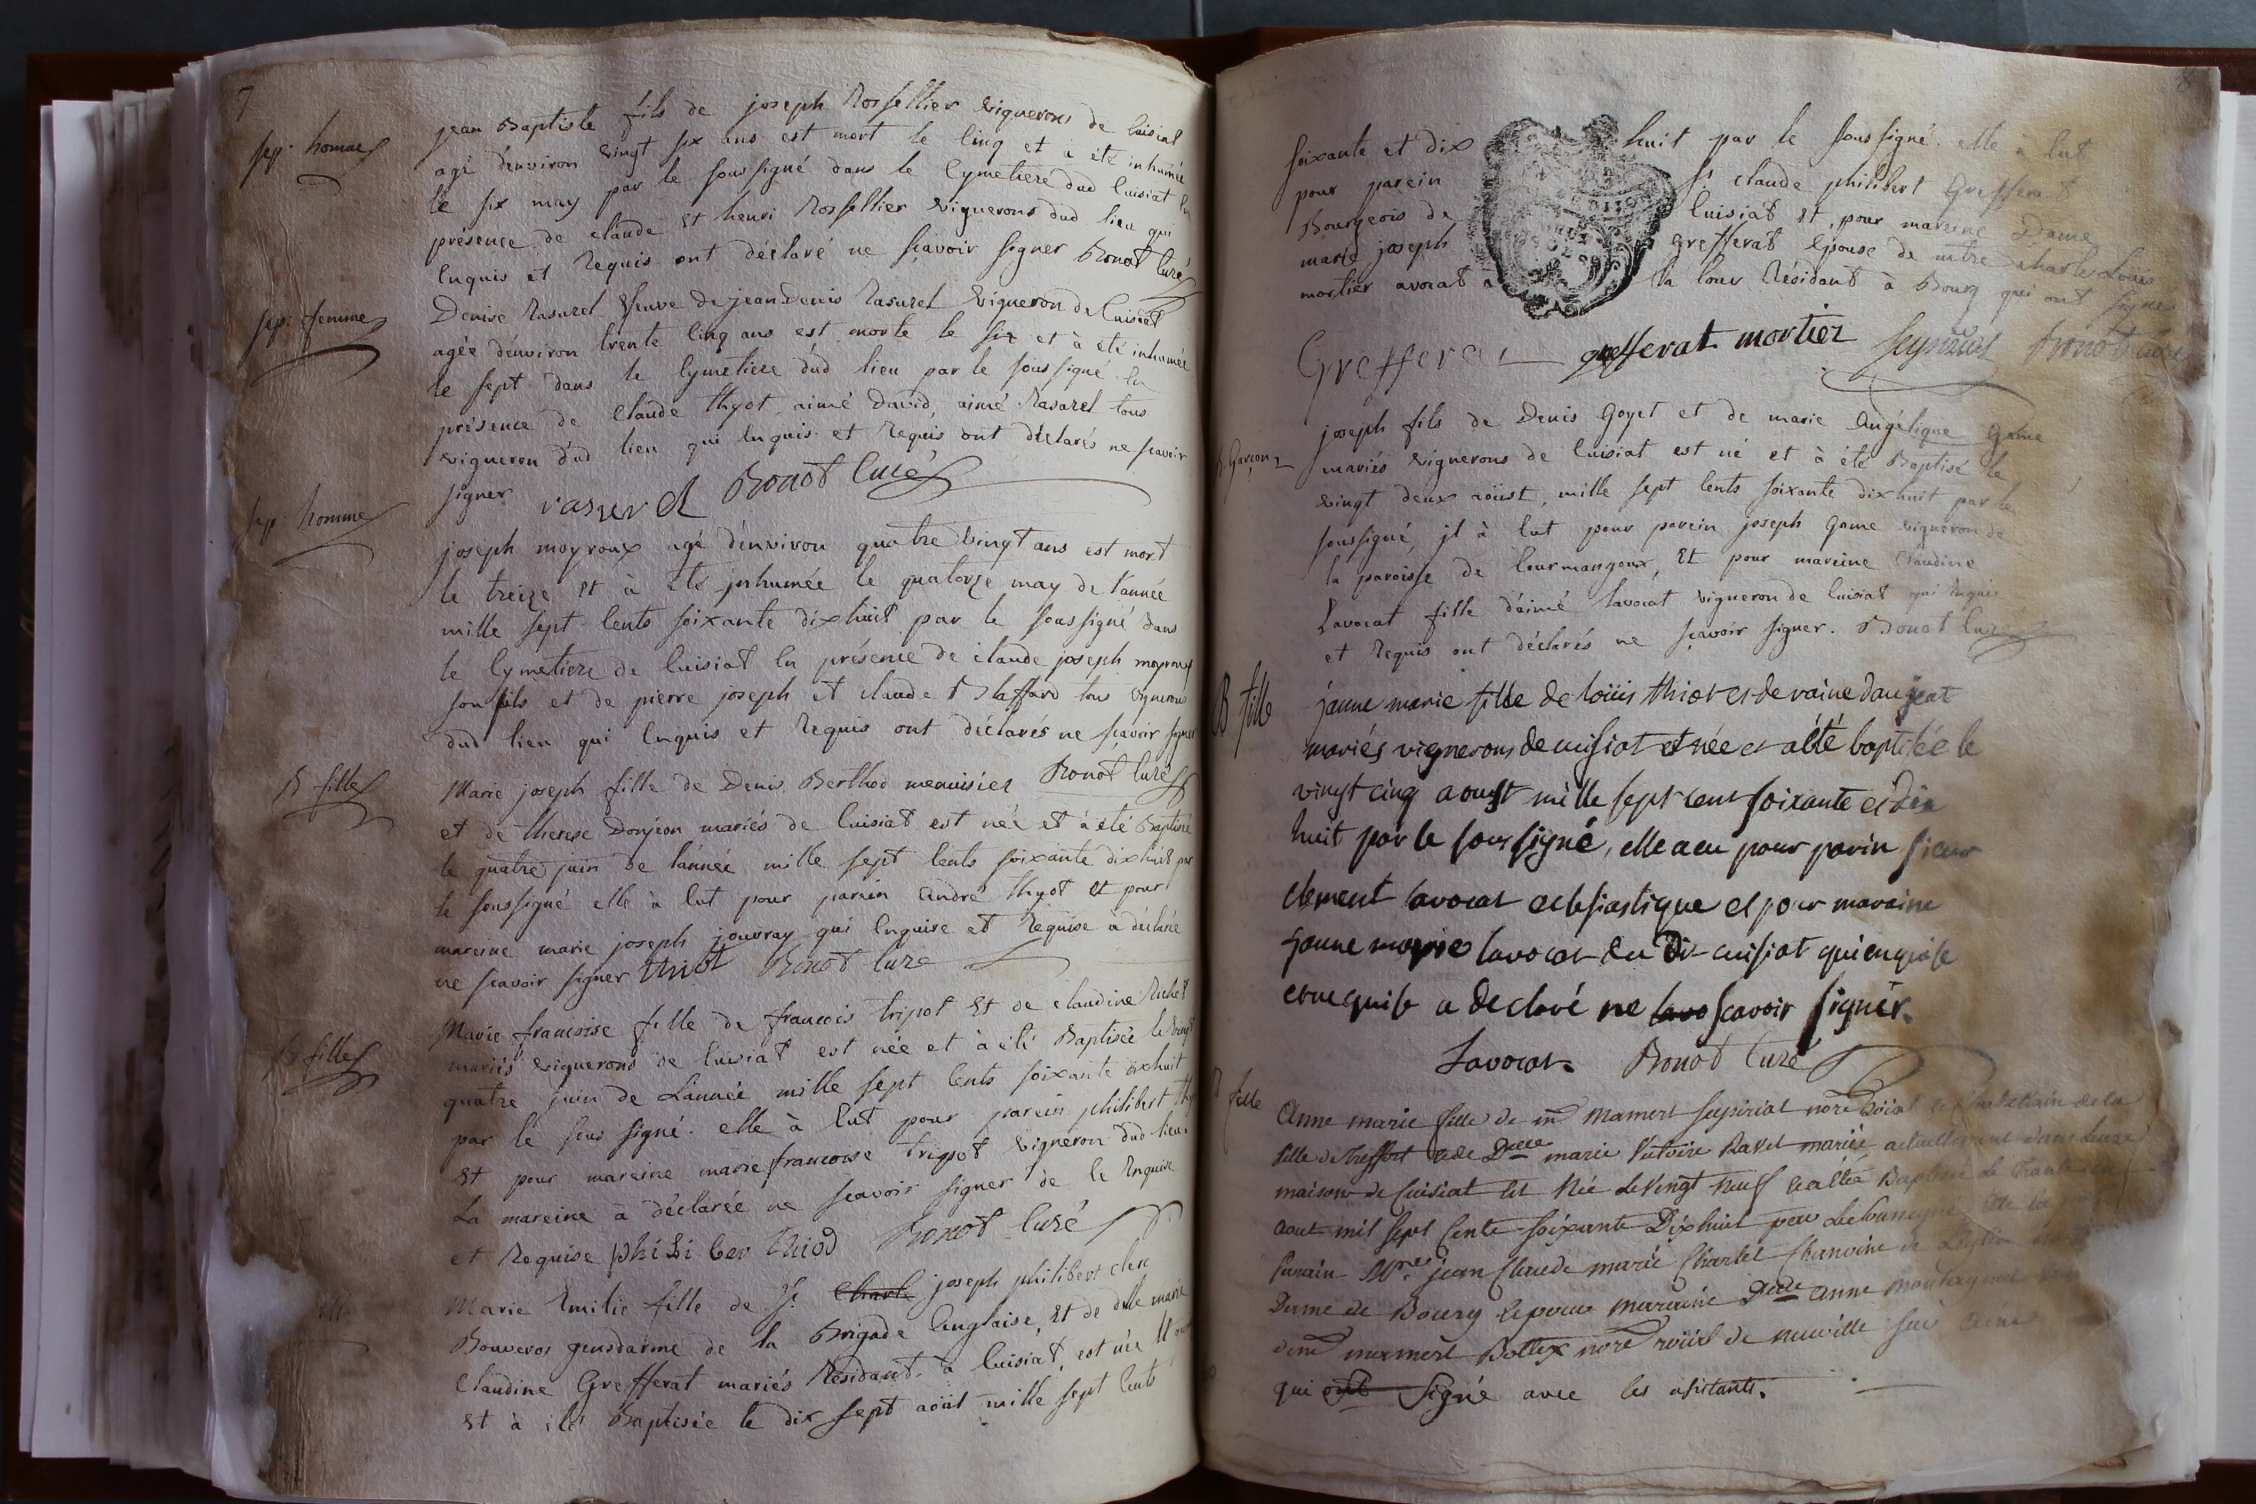 7
sep. homme
jean Baptiste fils de joseph Rossellier vigneron de Cuisiat
agé d'environ vingt six ans est mort le cinq et a été inhumée
le six may par le soussigné dans le Cymetiere dud Cuisiat En
présence de claude Et henri Rossellier vignerons dud lieu qui
Enquis et Requis ont déclaré ne sçavoir signer Bonot Curé
sep. femme
Denise Rasurel veuve de jean Denis Rasurel vigneron de Cuisiat
agée d'environ trente Cinq ans est morte le six et à été inhumée
le sept dans le Cymetiere dud lieu par le soussigné En
présence de Claude thyot, aimé David, aimé Rasurel tous
vigneron dud lieu qui Enquis et Requis ont déclarés ne scavoir
signer rasurel Bonot Curé
sep. homme
joseph moyroux agé d'environ quatre vingt ans est mort
le treize Et à été jnhumée le quatorze may de l'année
mille sept Cents soixante dixhuit par le soussigné dans
le Cymetiere de Cuisiat En présence de claude joseph moyroux
son fils et de pierre joseph et claude Blaffard tous vignerons
dud lieu qui Enquis et Requis ont déclarés ne scavoir signer
Bonot Curé
B fille
Marie joseph fille de Denis Berthod menuisier
et de therese Donjeon mariés de Cuisiat est née et à été Baptisée
le quatre juin de l'année mille sept Cents soixante dixhuit par
le soussigné elle à Eut pour parein andré thyot et pour
mareine marie joseph jouvray qui Enquise et Requise à déclarée
ne scavoir signer thiot Bonot Curé
B fille
Marie francoise fille de francois tripot Et de claudine
mariés vignerons de Cuisiat est née et à été Baptisée le vingt
quatre juin de L'année mille sept Cents soixante dixhuit
par le sous signé. elle à Eut pour parein philibert
Et pour mareine marie francoise tripot vigneron dud lieu.
La mareine à déclarée ne scavoir signer de ce Enquise
et Requise philiber thiod Bonot Curé
Marie Emilie fille de Sr. Charle joseph philibert
Bouveros gensdarme de la Brigade Anglaise, Et de dlle marie
Claudine Grefferat mariés Résidant à Cuisiat, est née
Et à été Baptisée le dix sept aoùt mille sept Cents
8
soixante et dix huit par le soussigné. elle a Eut
pour parein Sr claude philibert Grefferat
Bourgeois de Cuisiat Et pour mareine Dame
marie joseph Grefferat Epouse de mtre charle Louis
mortier avocat à la Cour Résidant à Bourg qui ont signé
Grefferat grefferat mortier Bonot Curé
B. Garçon
joseph fils de Denis Goyet et de marie Angélique Game
mariés vignerons de Cuisiat est né et à été Baptisé le
vingt deux aoùst, mille sept Cents soixante dixhuit par le
soussigné, jl à Eut pour parein joseph Game vigneron de
la paroisse de Courmangoux, Et pour mareine Claudine
Lavocat fille d'aimé Lavocat vigneron de Cuisiat qui Enquis
et Requis ont déclarés ne scavoir signer. Bonot Curé
B fille
janne marie fille de loüis thiot et de raine daujeat
mariés vignerons de cuisiat et née et a été baptisée le
vingt cinq aoust mille sept cent soixante et dix
huit par le soussigné, elle a eu pour parin sieur
clement lavocat eclesiastique et pour maraine
janne marie lavocat du dit cuisiat qui enquise
et requise a declaré ne lavo scavoir signér.
Lavocat. Bonot Curé
B fille
Anne marie fille de me Mamert sepiriat nore roïal et Chatelain de la
Ville de treffort et de Delle marie Victoire Ravet mariée actuellement dans leur
maison de Cuisiat Est Née Le Vingt Neuf et a Eté Baptisée le trante
aout mil sept Cente soixante Dixhuit par
parain Mre jean Claude marie Charles Chanoine de
Dame de Bourg et pour maraine Delle anne
de me mamert Bottex nore roïal de neuville
qui ont Signé avec les assistants.